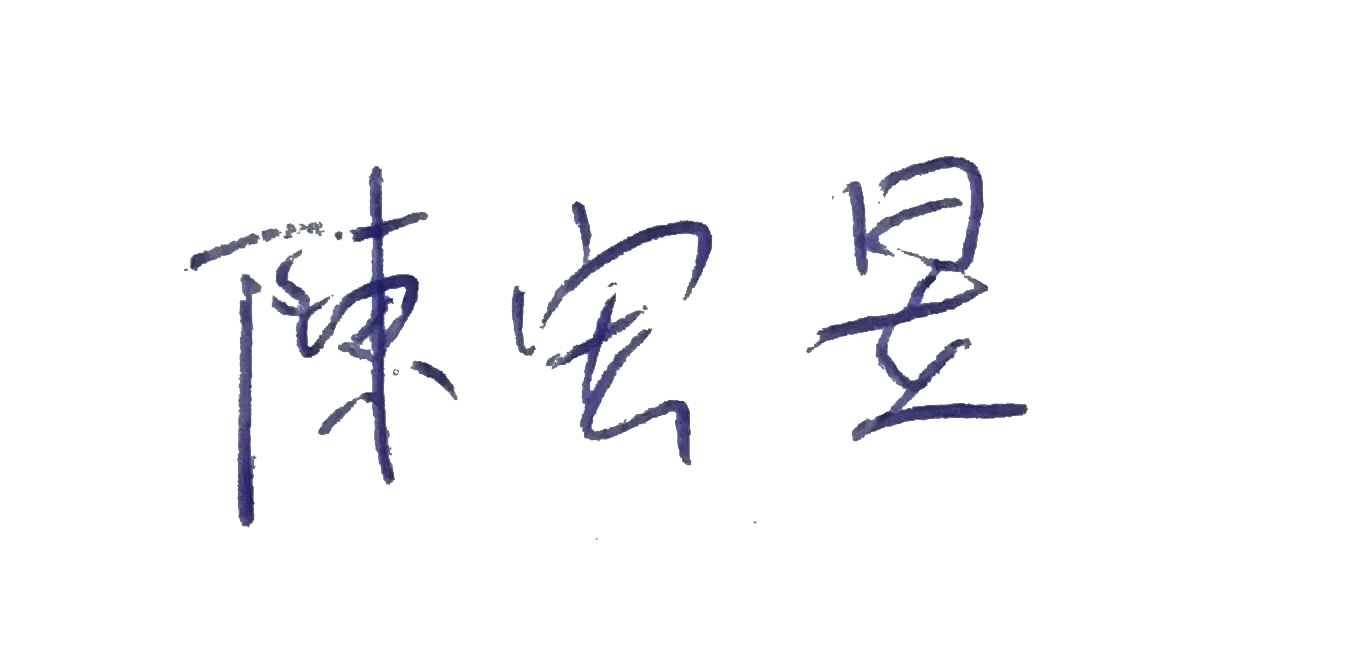 陳宏昱